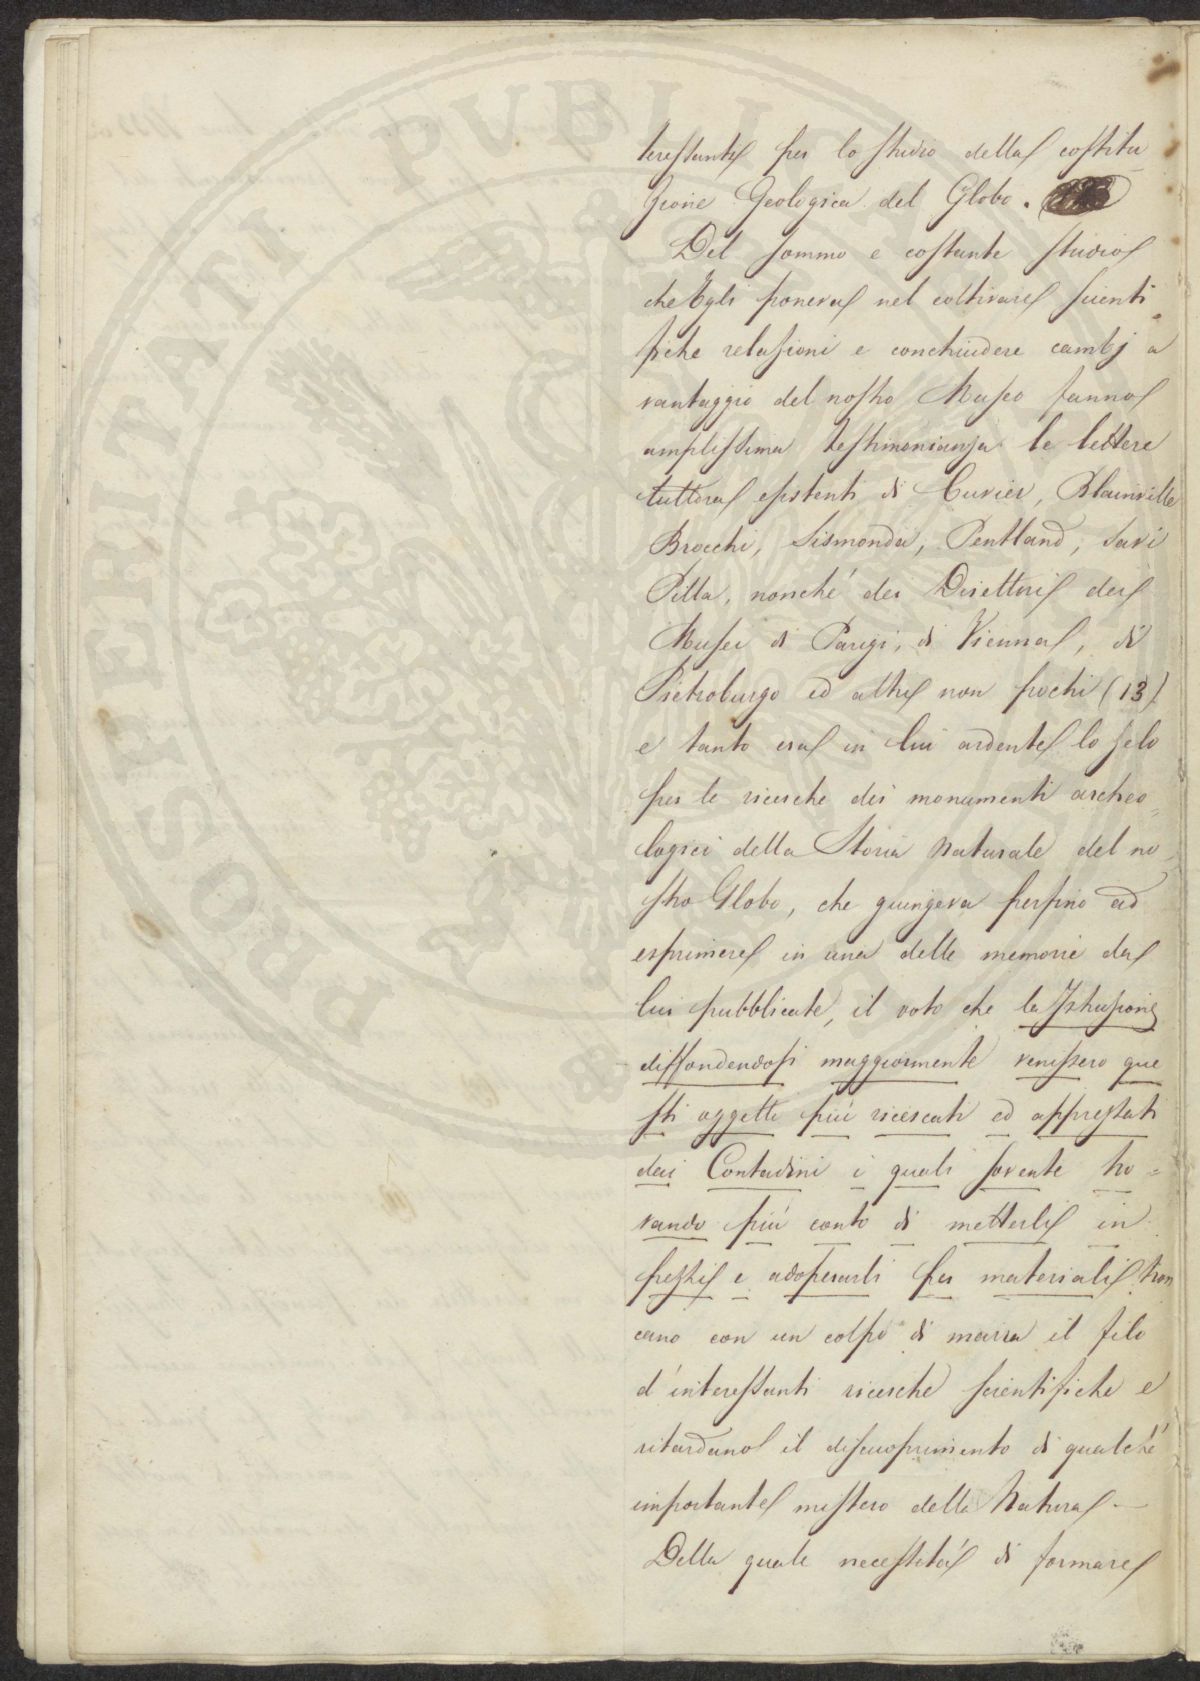 teressante per lo studio della costitu
zione Geologica del Globo.
Del sommo e costante studio
che Egli poneva nel coltivare scienti
fiche relazioni e conchiudere cambj a
vantaggio del nostro Museo fanno
amplissima testimonianza le lettere
tuttora esistenti di Cuvier, Blainville
Brocchi, Sismonda, Pentland, Savi
Pilla, nonché dei Direttori dei
Musei di Parigi, di Vienna, di
Pietroburgo ed altri non pochi (13)
e tanto era in lui ardente lo zelo
per le ricerche dei monumenti archeo=
logici della Storia Naturale del no
stro Globo, che giungeva perfino ad
esprimere in una delle memorie da
lui pubblicate, il voto che la Istruzione
diffondendosi maggiormente venissero que
sti oggetti più ricercati ed apprezzati
dai Contadini i quali sovente tro=
vando più conto di metterli in
pezzi e adoperarli per materiali tron
cano con un colpo di marra il filo
d'interessanti ricerche scientifiche e
ritardano il discuoprimento di qualche
importante mistero della Natura —
Della quale necessità di formare
PROSPERITATI PUBLIC